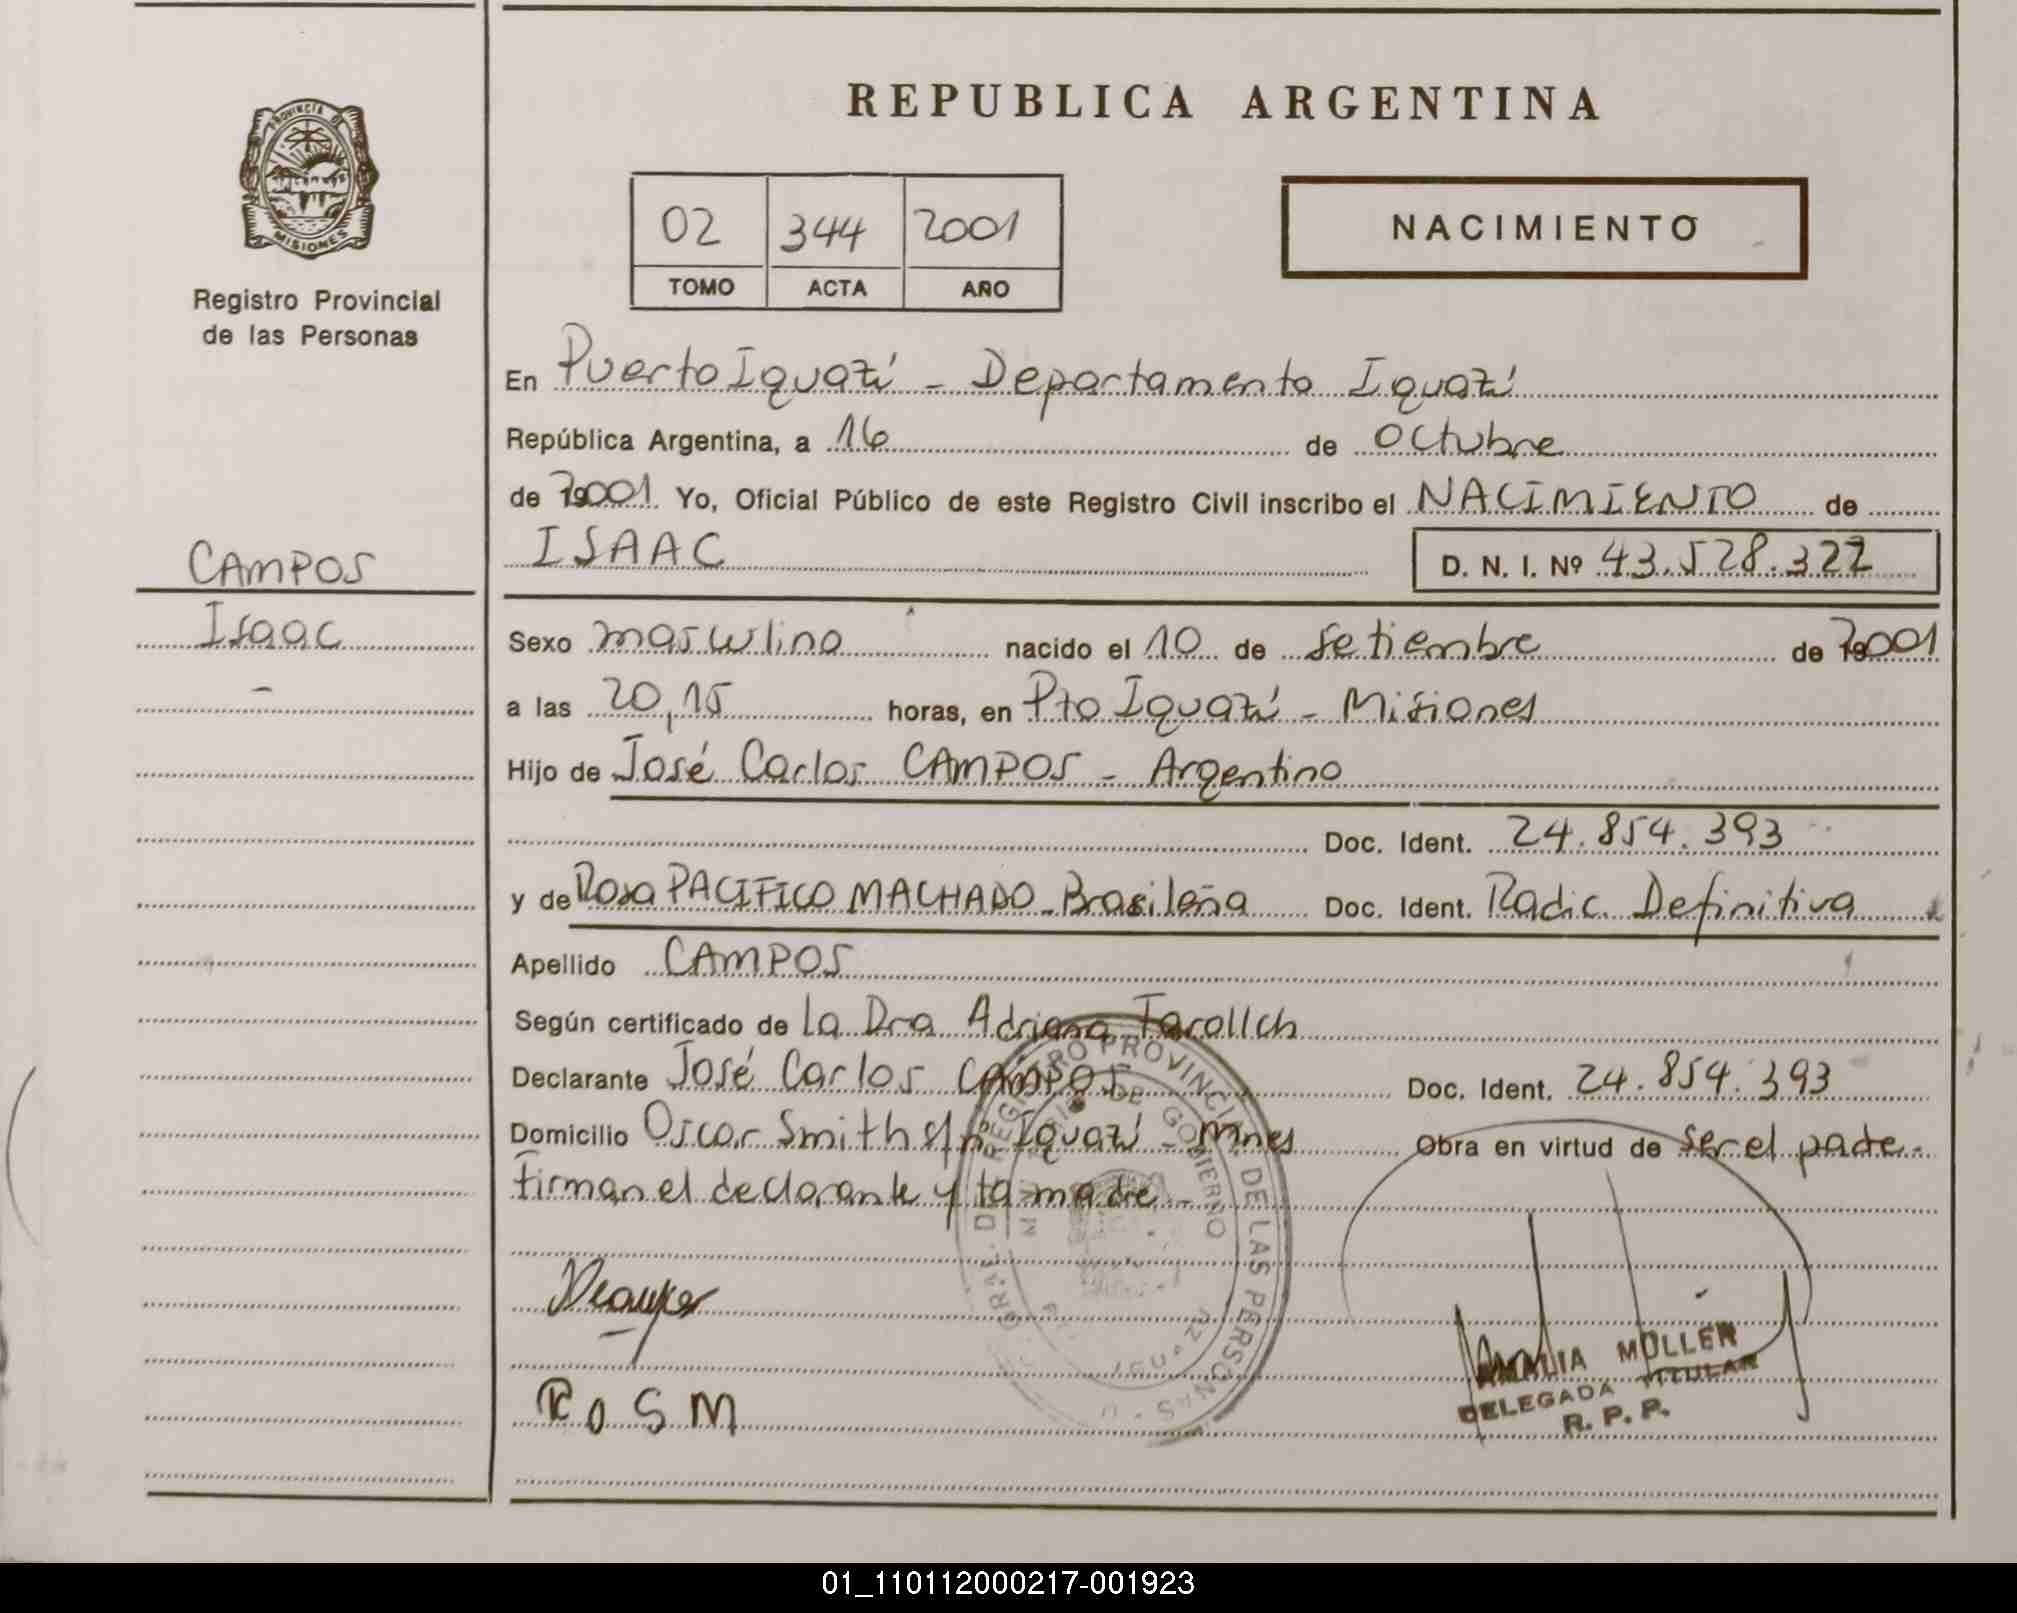 REPUBLICA ARGENTINA
PROVINCIA DE
MISIONES
Registro Provincial
de las Personas
02 344 2001
TOMO ACTA AÑO
NACIMIENTO
En Puerto Iguazú - Departamento Iguazú
República Argentina, a 16 de Octubre
de 2001 Yo, Oficial Público de este Registro Civil inscribo el NACIMIENTO de
ISAAC D. N. I. Nº 43.528.322
CAMPOS
Isaac
-
Sexo masculino nacido el 10 de setiembre de 2001
a las 20,15 horas, en Pto Iguazú - Misiones
Hijo de José Carlos CAMPOS - Argentino
Doc. Ident. 24.854.393
y de Rosa PACIFICO MACHADO - Brasileña Doc. Ident. Radic. Definitiva
Apellido CAMPOS
Según certificado de La Dra Adriana
Declarante José Carlos CAMPOS Doc. Ident. 24.854.393
Domicilio Oscar Smith s/nº Iguazú - Mnes Obra en virtud de ser el padre.
Firman el declarante y la madre -
REGISTRO PROVINCIAL DE LAS PERSONAS
DE GOBIERNO
IGUAZU
ROSM
AMALIA MOLLER
DELEGADA TITULAR
R. P. P.
01_110112000217-001923